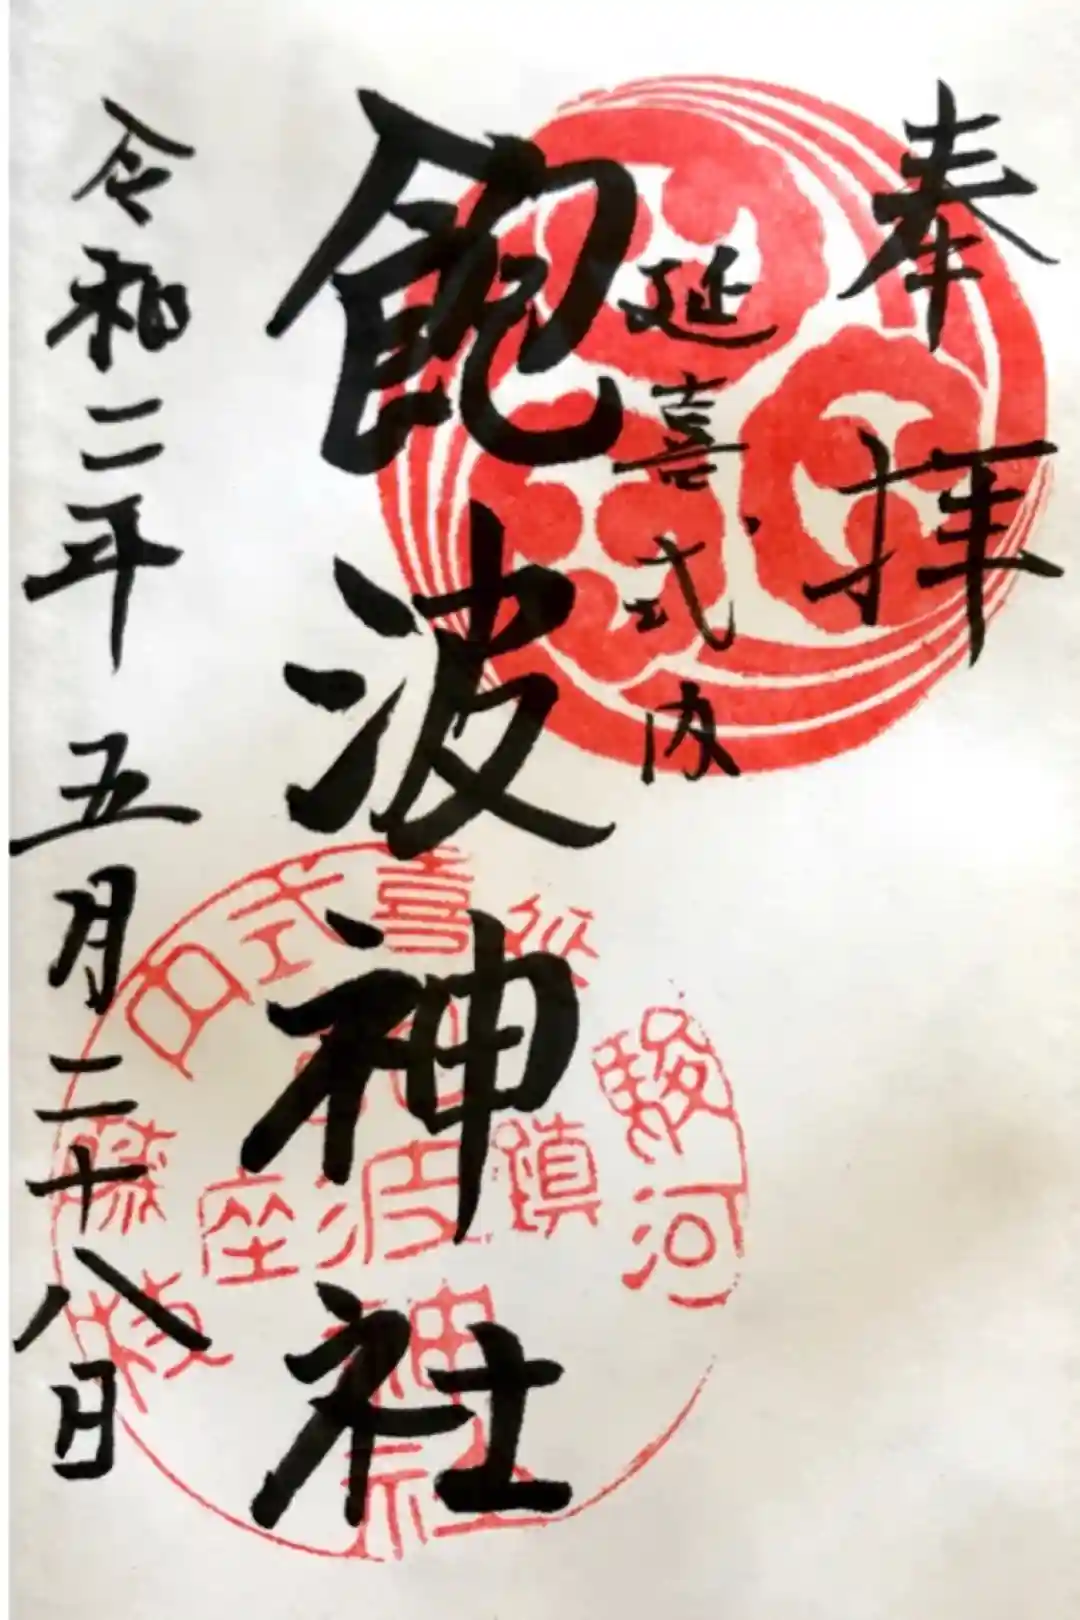 奉拝
延喜式内
飽波神社
令和二年 五月二十八日
駿河
延喜式内
鎮座
飽波神社
藤枝